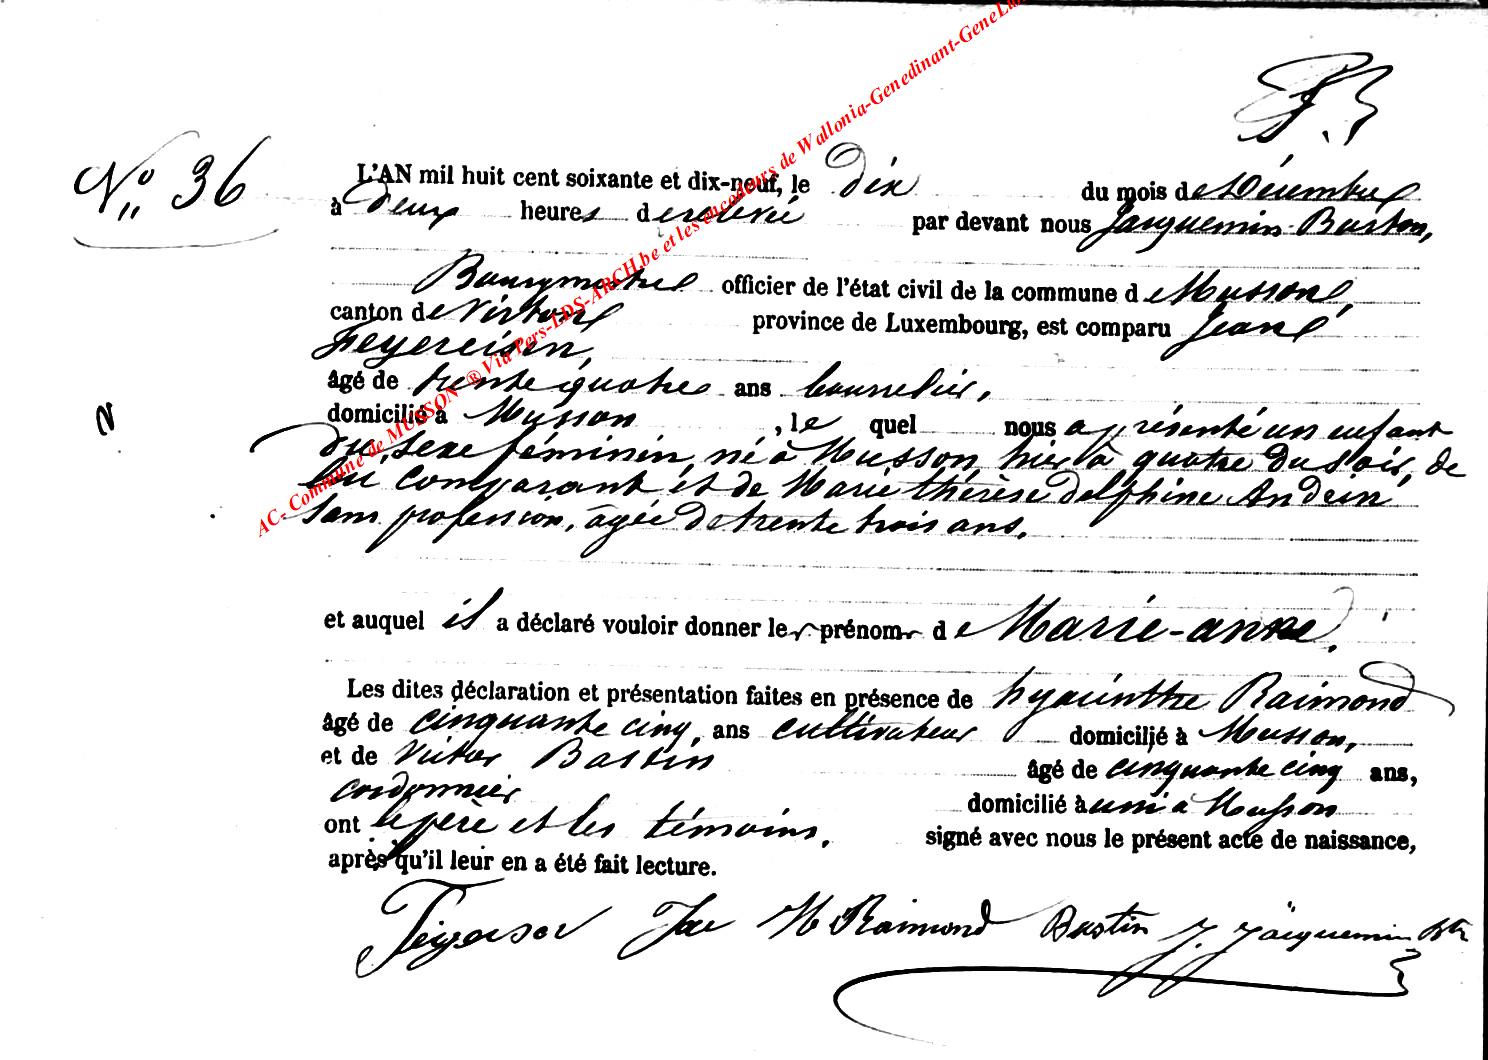 N° 36
L'AN mil huit cent soixante et dix-neuf, le dix du mois de Décembre
à deux heures de relevée par devant nous Jacquemin-Barton,
Bourgmestre officier de l'état civil de la commune de Musson,
canton de Virton province de Luxembourg, est comparu Jean
Feyereisen,
âgé de trente quatre ans bourrelier,
domicilié à Musson, le quel nous a présenté un enfant
du sexe féminin, né à Musson, hier à quatre du soir, de
lui comparant et de Marie thérèse delphine Andrin,
sans profession, âgée de trente trois ans.
et auquel il a déclaré vouloir donner le prénom de Marie-anne.
Les dites déclaration et présentation faites en présence de hyacinthe Raimond
âgé de cinquante cinq, ans cultivateur domicilié à Musson,
et de Victor Bastin âgé de cinquante cinq ans,
cordonnier domicilié à Musson
ont le père et les témoins, signé avec nous le présent acte de naissance,
après qu'il leur en a été fait lecture.
H Raimond Bastin J. Jacquemin
AC- Commune de MUSSON ® Via Pers-LDS-ARCH.be et les encodeurs de Wallonia-Genedinant-GeneLux